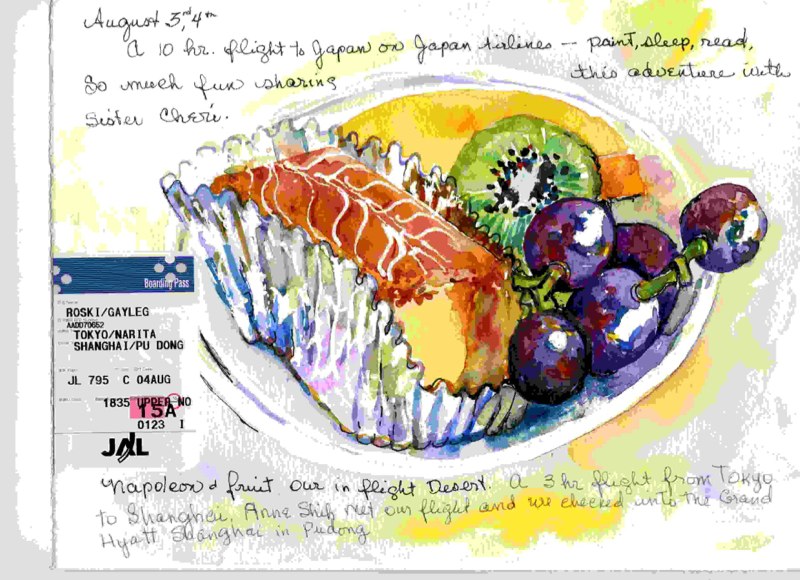 August 3rd, 4th
A 10 hr. flight to Japan on Japan Airlines — paint, sleep, read,
So much fun sharing this adventure with
Sister Cheri.
Boarding Pass
ROSKI/GAYLEG
AADD70652
TOKYO/NARITA
SHANGHAI/PU DONG
JL 795 C 04AUG
1835 UPPER NO
15A
0123 I
JAL
Napoleon & fruit our in flight Desert. A 3 hr flight from Tokyo
to Shanghai. Anne Shih met our flight and we checked into the Grand
Hyatt Shanghai in Pudong